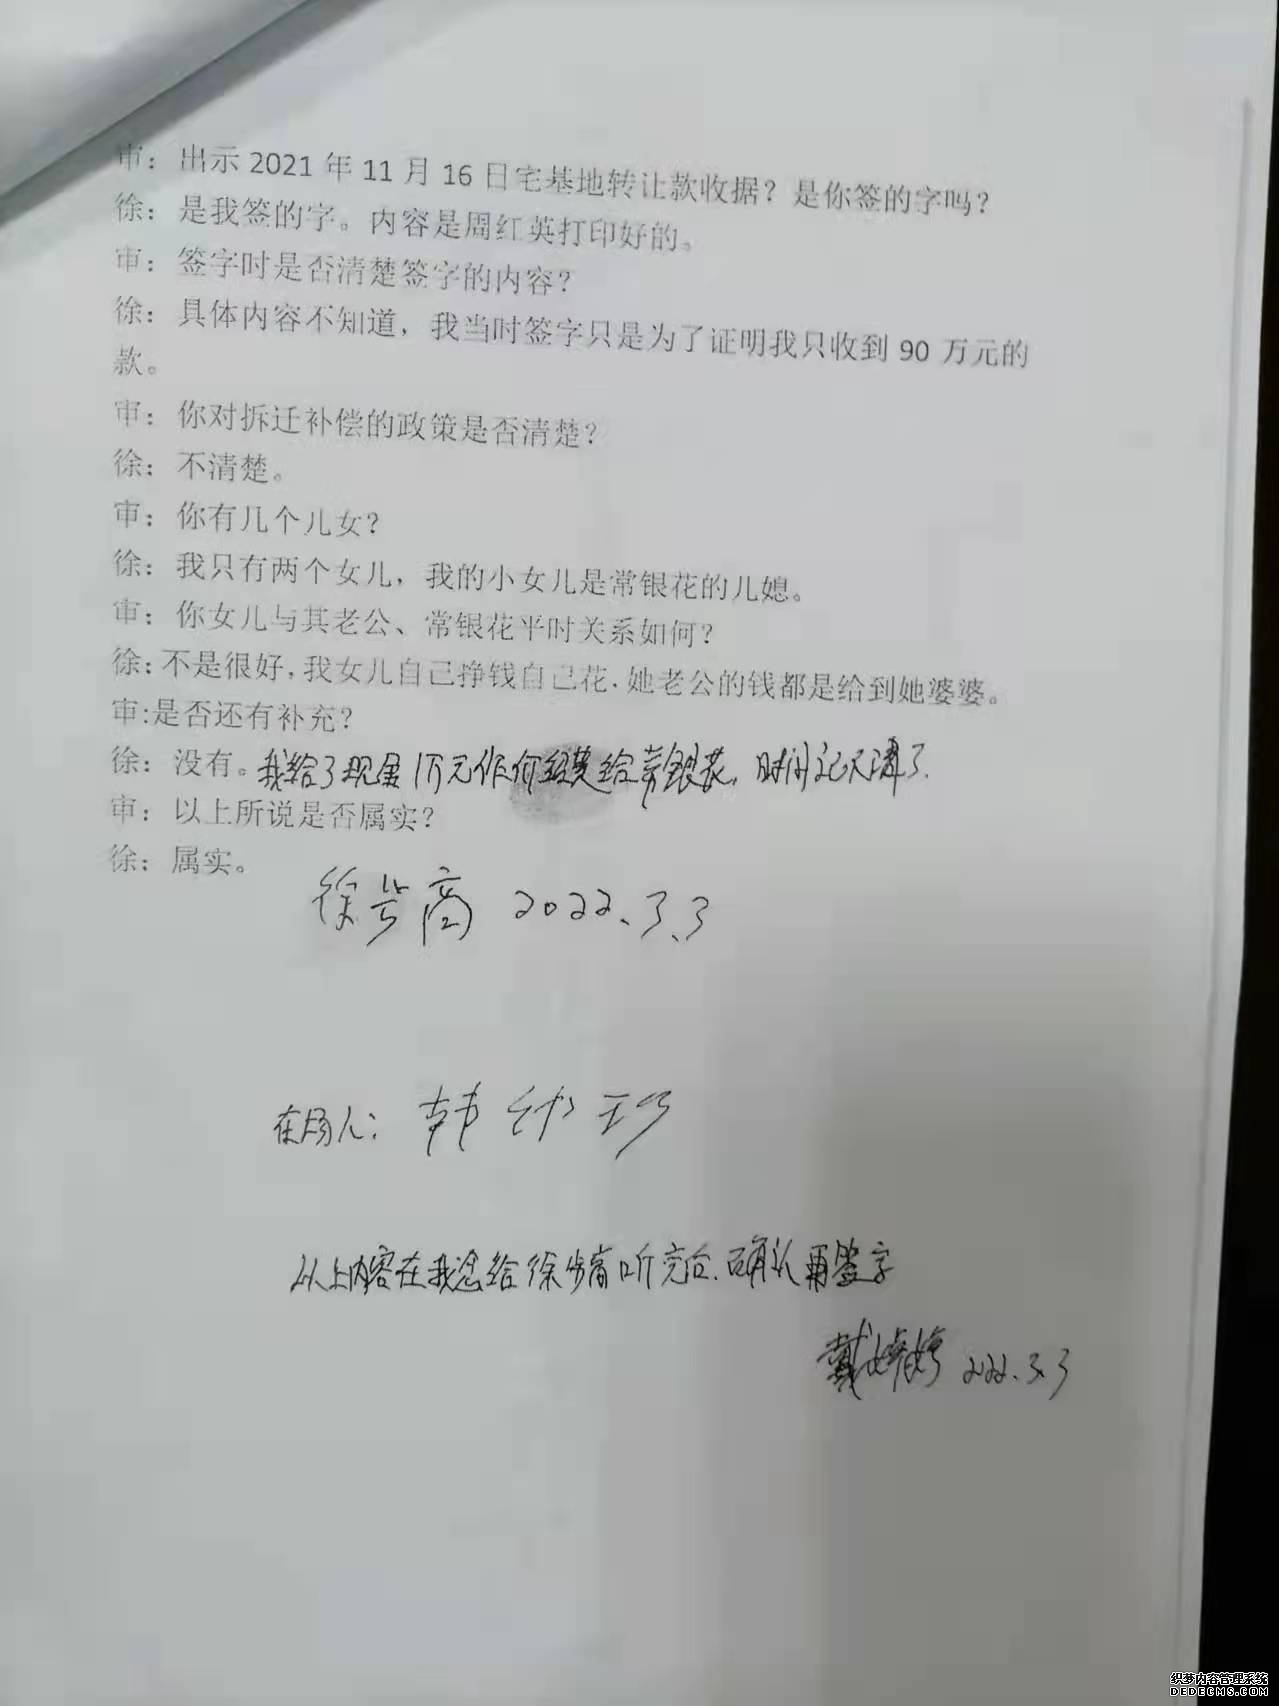 审：出示 2021 年 11 月 16 日宅基地转让款收据？是你签的字吗？
徐：是我签的字。内容是周红英打印好的。
审：签字时是否清楚签字的内容？
徐：具体内容不知道，我当时签字只是为了证明我只收到 90 万元的
款。
审：你对拆迁补偿的政策是否清楚？
徐：不清楚。
审：你有几个儿女？
徐：我只有两个女儿，我的小女儿是常银花的儿媳。
审：你女儿与其老公、常银花平时关系如何？
徐: 不是很好, 我女儿自己挣钱自己花. 她老公的钱都是给到她婆婆。
审:是否还有补充？
徐：没有。我给了现金1万元作介绍费给常银花，时间记不清了.
审：以上所说是否属实？
徐：属实。
徐步高 2022.3.3
在场人：韩
以上内容在我念给徐步高听完后.确认再签字
戴婷婷 2022.3.3
织梦内容管理系统
DEDECMS.COM